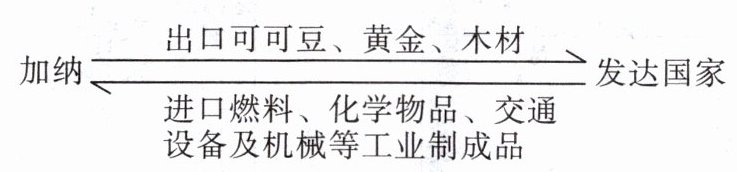 出口可可豆、黄金、木材
加纳
发达国家
进口燃料、化学物品、交通
设备及机械等工业制成品